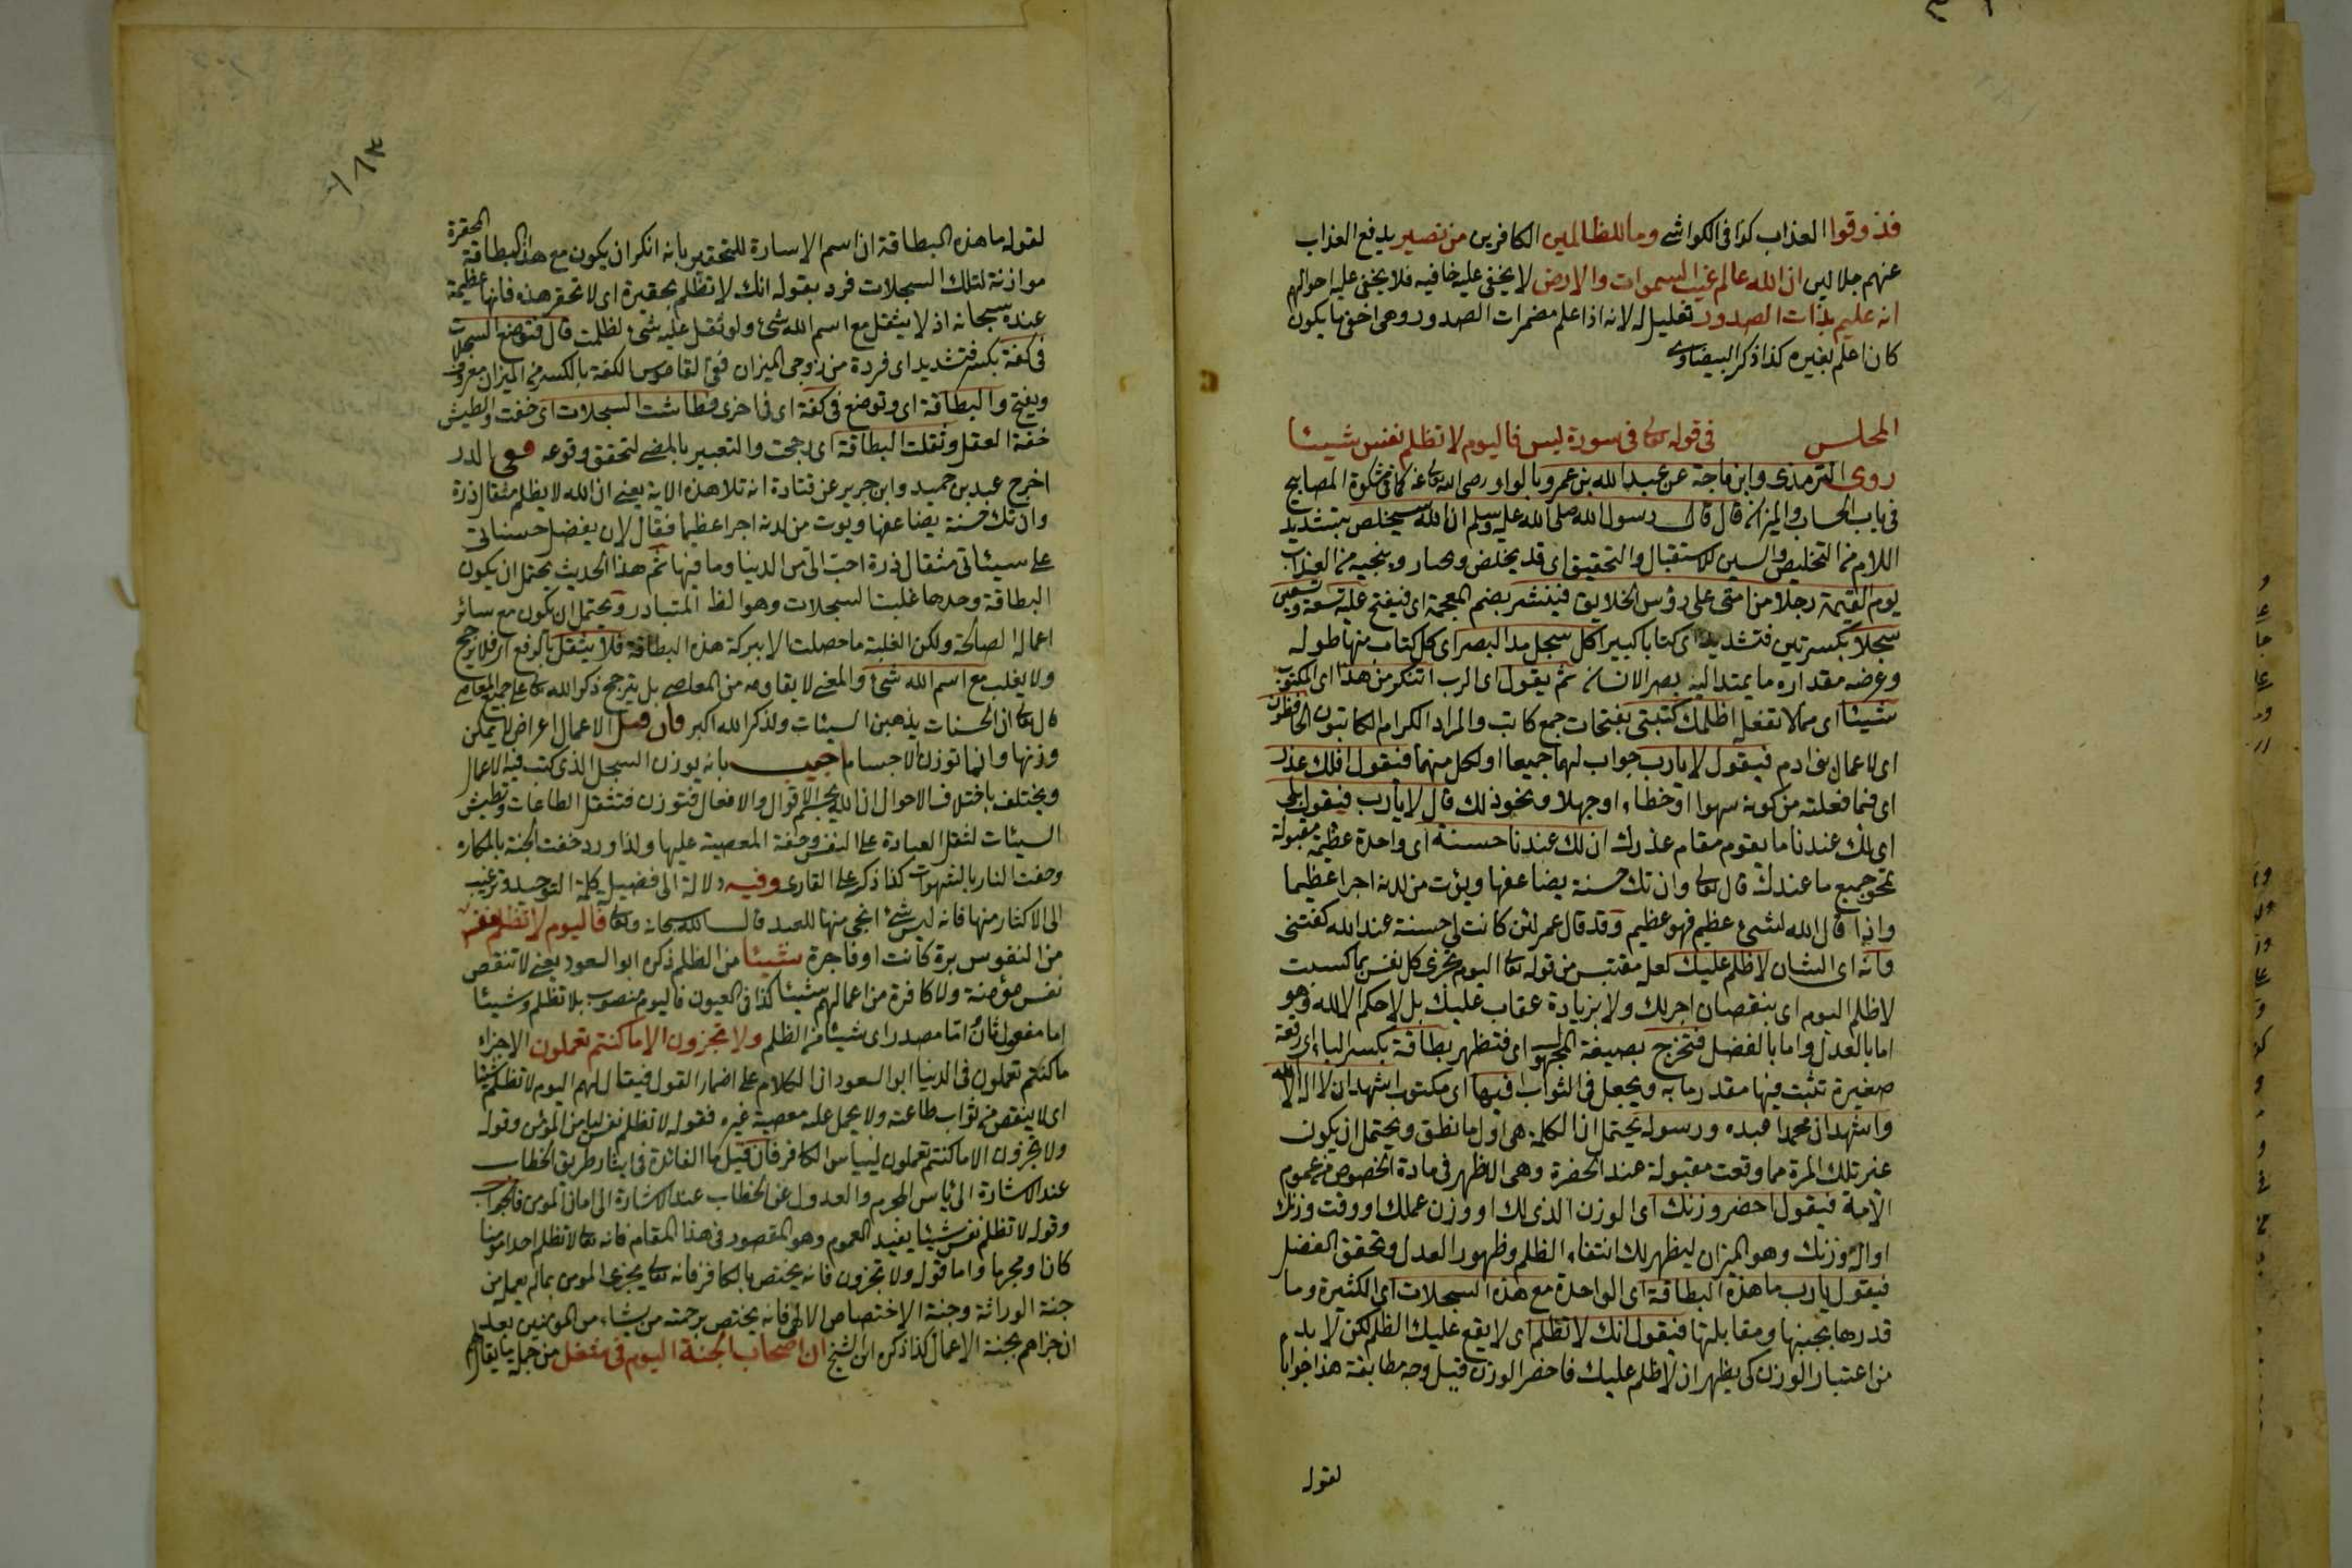 فذوقوا العذاب كذا فى الكواشى وما للظالمين الكافرين من نصير يدفع العذاب
عنهم جلالين ان الله عالم غيب السموات والارض لا يخفى عليه خافيه فلا يخفى عليه احوالهم
انه عليم بذات الصدور تعليل له لانه اذا علم مضمرات الصدور وهى اخفى ما يكون
كان اعلم بغيره كذا ذكر البيضاوى
المجلس فى قوله تعالى فى سورة يس فاليوم لا تظلم نفس شيئا
روى الترمذى وابن ماجة عن عبد الله بن عمرو بالواو رضى الله تعالى عنه كما فى مشكوة المصابيح
فى باب الحساب والميزان قال قال رسول الله صلى الله عليه وسلم ان الله سيخلص بتشديد
اللام من التخليص والسين للاستقبال والتحقيق اى قد يخلص ويختار وينجيه من العذاب
يوم القيمة رجلا من امتى على رؤس الخلايق فينشر بضم المعجمة اى فيفتح عليه تسعة وتسعين
سجلا بكسرتين فتشديد اى كتابا كبيرا كل سجل مد البصر اى كل كتاب منها طوله
وعرضه مقداره ما يمتد اليه بصر الانسان ثم يقول اى الرب اتنكر من هذا اى المكتوب
شيئا اى مما لا تفعل اظلمك كتبتى بفتحات جمع كاتب والمراد الكرام الكاتبون الحافظون
اى لاعمال بنى ادم فيقول لا يا رب جواب لهما جميعا او لكل منهما فيقول افلك عذر
اى فيما فعلته من كونه سهوا او خطاء او جهلا ونحو ذلك قال لا يا رب فيقول بلى
اى لك عندنا ما يقوم مقام عذرك ان لك عندنا حسنة اى واحدة عظيمة مقبولة
تمحو جميع ما عندك قال تعالى وان تك حسنة يضاعفها ويؤت من لدنه اجرا عظيما
واذا قال الله لشىء عظيم فهو عظيم وقد قال عمر لئن كانت لى حسنة عند الله كفتنى
وانه اى الشان لا ظلم عليك لعل مقتبس من قوله تعالى اليوم تجزى كل نفس بما كسبت
لا ظلم اليوم اى بنقصان اجر لك ولا بزيادة عقاب عليك بل لا حكم الا لله وهو
اما بالعدل واما بالفضل فتخرج بصيغة المجهول اى فتظهر بطاقة بكسر الباء اى رقعة
صغيرة تثبت فيها مقدر ما به ويجعل فى الثواب فيها اى مكتوب اشهد ان لا اله الا الله
واشهد ان محمدا عبده ورسوله يحتمل ان الكلمة هى اول ما نطق ويحتمل ان يكون
غير تلك المرة مما وقعت مقبولة عند الحضرة وهى الاظهر فى مادة الخصوص من عموم
الامة فيقول احضر وزنك اى الوزن الذى لك او وزن عملك او وقت وزنك
او الة وزنك وهو الميزان ليظهر لك انتفاء الظلم وظهور العدل وتحقق الفضل
فيقول يا رب ما هذه البطاقة اى الواحدة مع هذه السجلات اى الكثيرة وما
قدرها بجنبها ومقابلتها فيقول انك لا تظلم اى لا يقع عليك الظلم لكن لا بد
من اعتبار الوزن كى يظهر ان لا ظلم عليك فاحضر الوزن قيل وجه مطابقة هذا جوابا
لقوله
لقوله ما هذه البطاقة ان اسم الاسارة للتحقير بانه انكر ان يكون مع هذه البطاقة المحقرة
موازنة لتلك السجلات فرد بقوله انك لا تظلم بحقيرة اى لا تحقر هذه فانها عظيمة
عنده سبحانه اذ لا يثقل مع اسم الله شئ ولو ثقل عليه شئ لظلمت قال فتوضع السجلات
فى كفة بكسر فتشديد اى فردة من زوجى الميزان ففى القاموس الكفة بالكسر من الميزان معروف
ويفتح والبطاقة اى وتوضع فى كفة اى فى اخرى فطاشت السجلات اى خفت والطيش
خفة العقل وثقلت البطاقة اى رجحت والتعبير بالمضى لتحقق وقوعه وفى الدر
اخرج عبد بن حميد وابن جرير عن قتادة انه تلا هذه الاية يعنى ان الله لا يظلم مثقال ذرة
وان تك حسنة يضاعفها ويوت من لدنه اجرا عظيما فقال لان يفضل حسناتى
على سيئاتى مثقال ذرة احب الى من الدنيا وما فيها ثم هذا الحديث يحتمل ان يكون
البطاقة وحدها غلبت السجلات وهو الظ المتبادر ويحتمل ان يكون مع سائر
اعماله الصالحة ولكن الغلبة ما حصلت الا ببركة هذه البطاقة فلا يثقل بالرفع اى فلا يرجح
ولا يغلب مع اسم الله شئ والمعنى لا يقاومه من المعاصى بل يترجح ذكر الله تعالى على جميع المعاصى
قال تعالى ان الحسنات يذهبن السيئات ولذكر الله اكبر فان قيل الاعمال اعراض لا يمكن
وزنها وانما توزن الاجسام اجيب بانه يوزن السجل الذى كتب فيه الاعمال
ويختلف باختلاف الاحوال ان الله يجسم الاقوال والافعال فتوزن فتثقل الطاعات وتطيش
السيئات لثقل العبادة على النفس وخفة المعصية عليها ولذا ورد حفت الجنة بالمكاره
وحفت النار بالشهوات كذا ذكر على القارى وفيه دلالة الى فضيل كلمة التوحيد وترغيب
الى الاكثار منها فانه ليس شئ انجى منها للعبد قال الله سبحانه وتعالى فاليوم لا تظلم نفس
من النفوس برة كانت او فاجرة شيئا من الظلم ذكره ابو السعود يعنى لا تنقص
نفس مؤمنة ولا كافرة من اعمالهم شيئا كذا فى العيون فاليوم منصوب بلا تظلم وشيئا
اما مفعول ثان اما مصدر اى شيئا من الظلم ولا تجزون الا ما كنتم تعملون الا جزاء
ما كنتم تعملون فى الدنيا ابو السعود ان الكلام على اضمار القول فيقال لهم اليوم لا تظلم شيئا
اى لا ينقص من ثواب طاعته ولا يحمل عليه معصية غيره فقوله لا تظلم نفس ليامن المؤمن وقوله
ولا تجزون الا ما كنتم تعملون ليياس الكافر فان قيل ما الفائدة فى ايثار طريق الخطاب
عند الاشارة الى ياس المجرم والعدول عن الخطاب عند الاشارة الى امان المومن فالجواب
وقوله لا تظلم نفس شيئا يفيد العموم وهو المقصود فى هذا المقام فانه تعالى لا تظلم احدا مومنا
كان او مجرما واما قوله ولا تجزون فانه يختص بالكافر فانه تعالى يجزى المومن بما لم يعمل من
جنة الوراثة وجنة الاختصاص الالهى فانه يختص برحمته من يشاء من المؤمنين بعد
ان جزاهم بجنة الاعمال كذا ذكره ابن الشيخ ان اصحاب الجنة اليوم فى شغل من جملة ما يقال